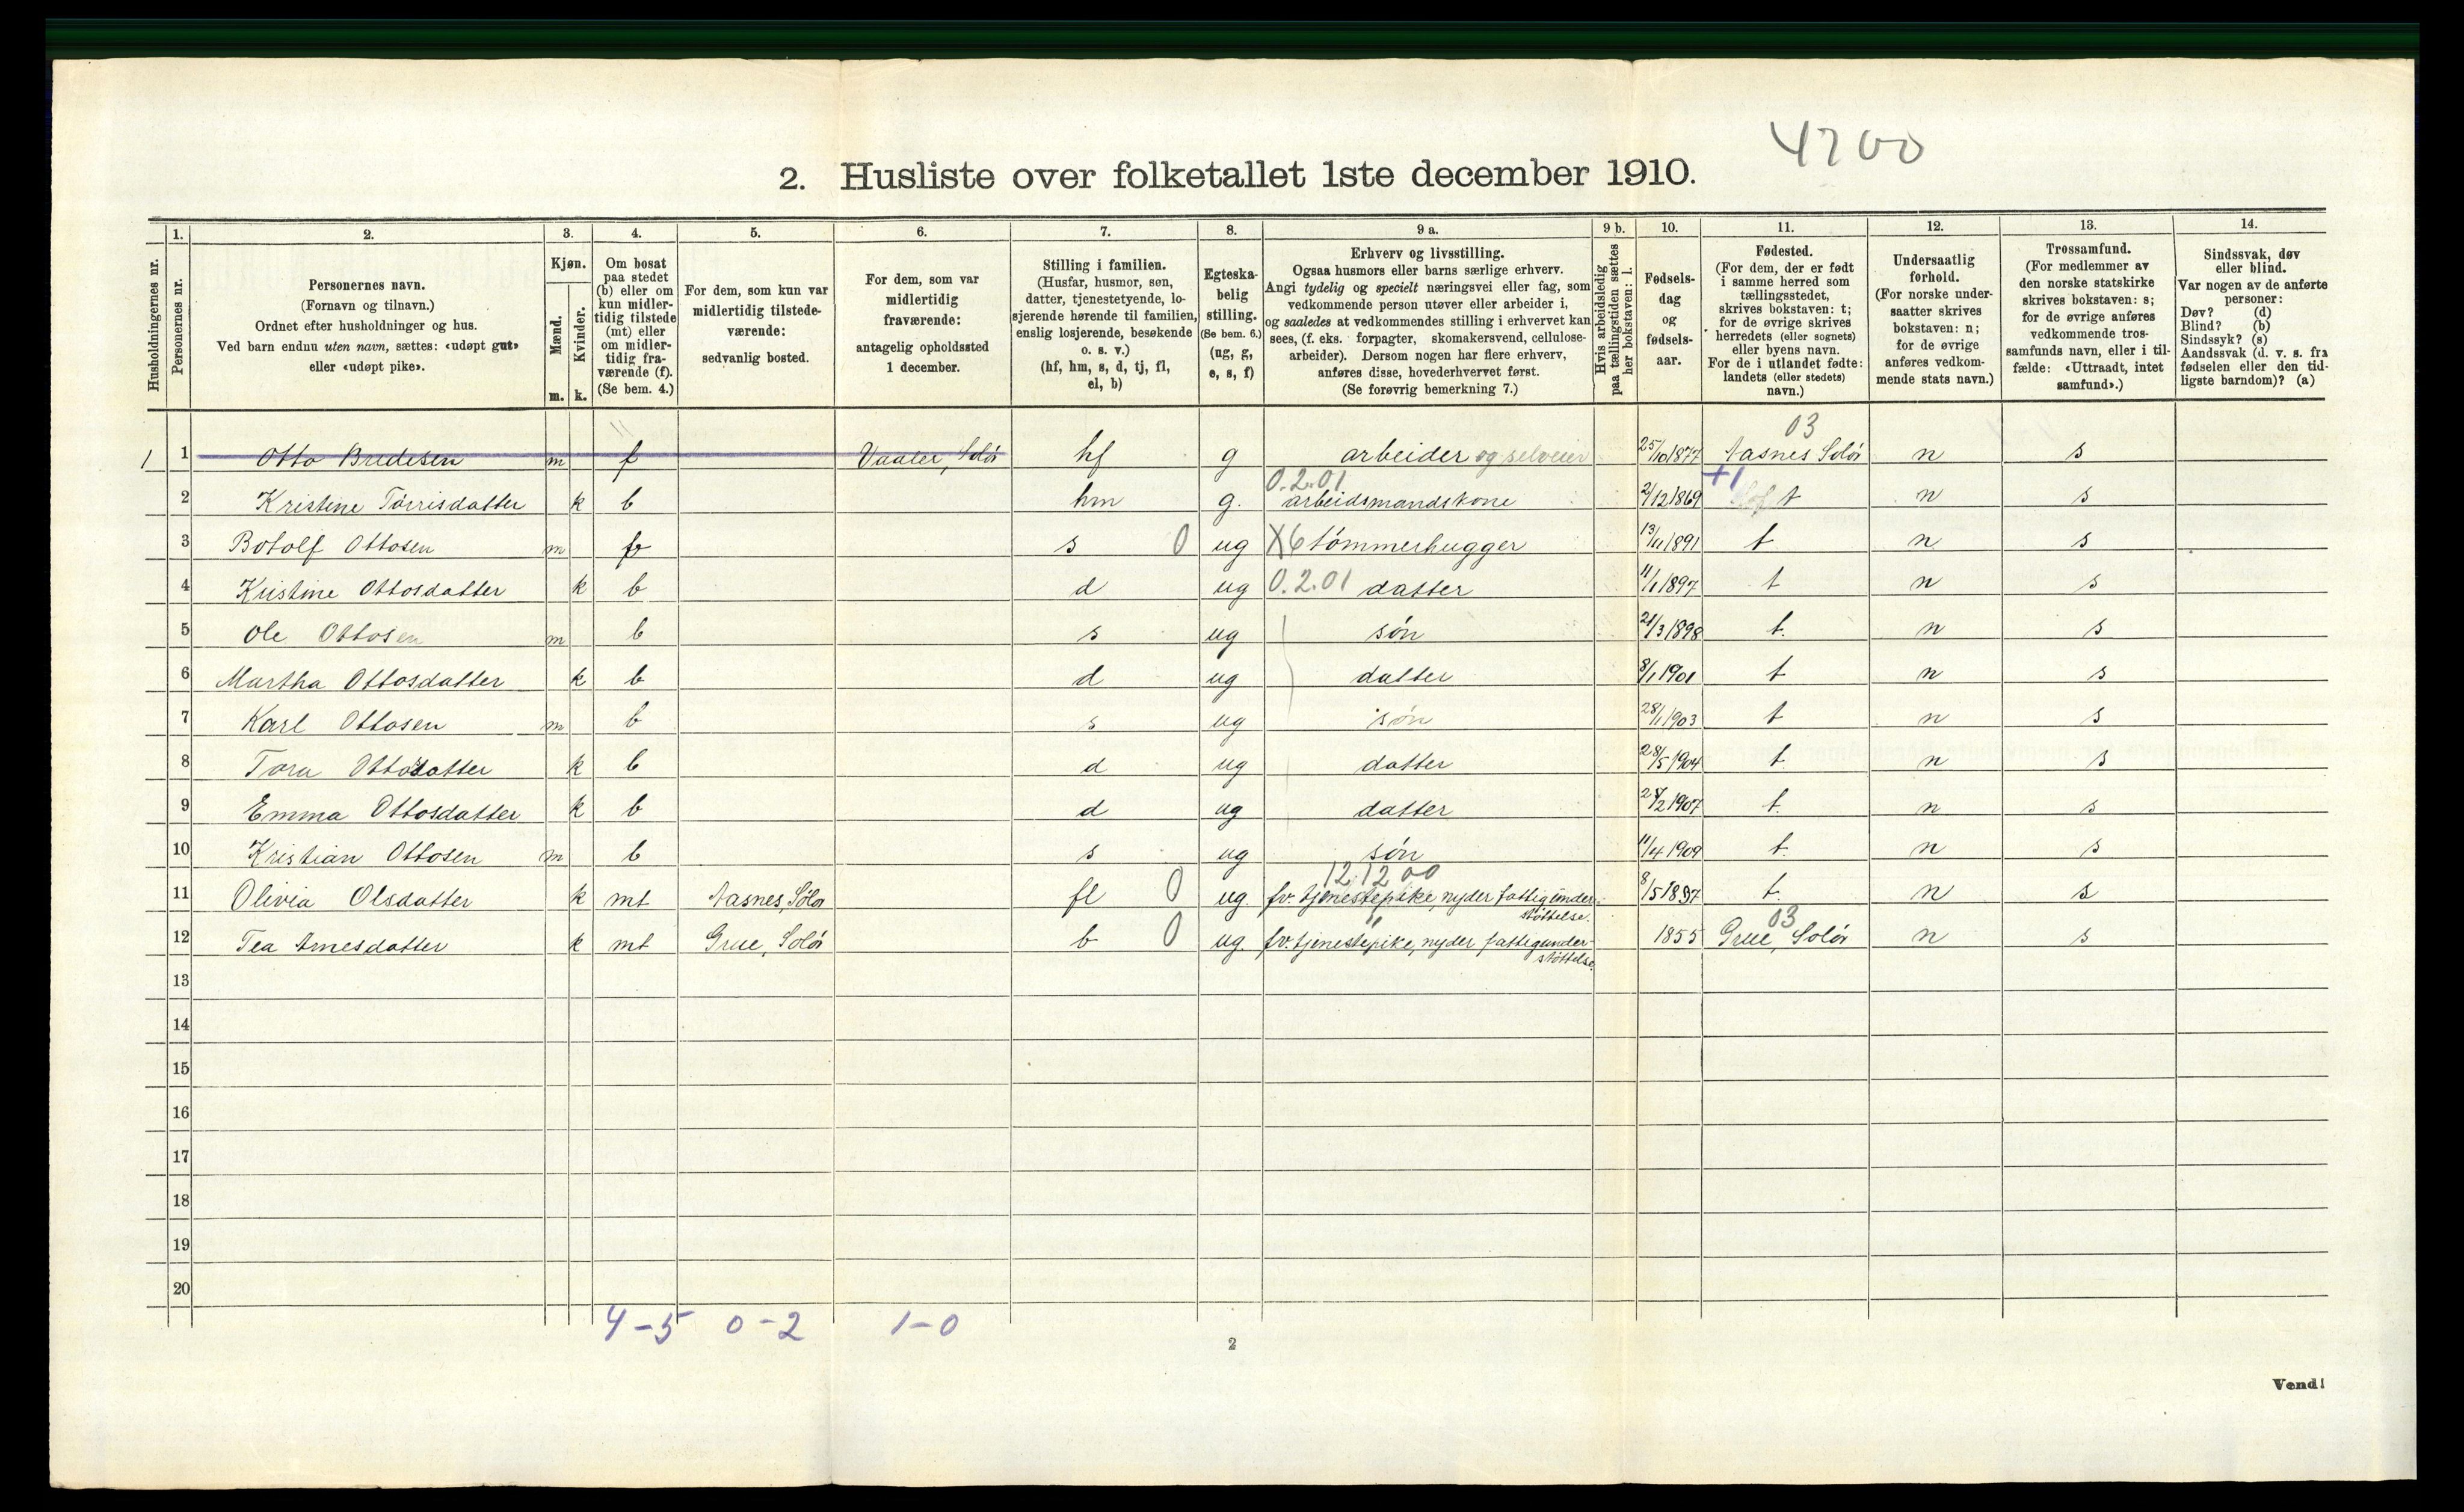 4200
2. Husliste over folketallet 1ste december 1910.
Husholdningernes nr.
1.
Personernes nr.
2.
Personernes navn.
(Fornavn og tilnavn.)
Ordnet efter husholdninger og hus.
Ved barn endnu uten navn, sættes: «udøpt gut»
eller «udøpt pike».
3.
Kjøn.
Mænd.
Kvinder.
m. k.
4.
Om bosat
paa stedet
(b) eller om
kun midler-
tidig tilstede
(mt) eller
om midler-
tidig fra-
værende (f).
(Se bem. 4.)
5.
For dem, som kun var
midlertidig tilstede-
værende:
sedvanlig bosted.
6.
For dem, som var
midlertidig
fraværende:
antagelig opholdssted
1 december.
7.
Stilling i familien.
(Husfar, husmor, søn,
datter, tjenestetyende, lo-
sjerende hørende til familien,
enslig losjerende, besøkende
o. s. v.)
(hf, hm, s, d, tj, fl,
el, b)
8.
Egteska-
belig
stilling.
(Se bem. 6.)
(ug, g,
e, s, f)
9 a.
Erhverv og livsstilling.
Ogsaa husmors eller barns særlige erhverv.
Angi tydelig og specielt næringsvei eller fag, som
vedkommende person utøver eller arbeider i,
og saaledes at vedkommendes stilling i erhvervet kan
sees, (f. eks. forpagter, skomakersvend, cellulose-
arbeider). Dersom nogen har flere erhverv,
anføres disse, hovederhvervet først.
(Se forøvrig bemerkning 7.)
9 b.
Hvis arbeidsledig
paa tællingstiden sættes
her bokstaven: l.
10.
Fødsels-
dag
og
fødsels-
aar.
11.
Fødested.
(For dem, der er født
i samme herred som
tællingsstedet,
skrives bokstaven: t;
for de øvrige skrives
herredets (eller sognets)
eller byens navn.
For de i utlandet fødte:
landets (eller stedets)
navn.)
12.
Undersaatlig
forhold.
(For norske under-
saatter skrives
bokstaven: n;
for de øvrige
anføres vedkom-
mende stats navn.)
13.
Trossamfund.
(For medlemmer av
den norske statskirke
skrives bokstaven: s;
for de øvrige anføres
vedkommende tros-
samfunds navn, eller i til-
fælde: «Uttraadt, intet
samfund».)
14.
Sindssvak, døv
eller blind.
Var nogen av de anførte
personer:
Døv? (d)
Blind? (b)
Sindssyk? (s)
Aandssvak (d. v. s. fra
fødselen eller den tid-
ligste barndom)? (a)
03
1 1 Otto Bredesen m f Vaaler, Solør hf g arbeider og selveier 25/10 1877 Aasnes Solør n s
0.2.01 +1
2 Kristine Tørrisdatter k b hm g. arbeidsmandskone 2/12 1869 t n s
3 Botolf Ottosen m s 0 ug X6 tømmerhugger 13/11 1891 t n s
4 Kristine Ottosdatter k b d ug 0.2.01 datter 11/1 1897 t n s
5 Ole Ottosen m b s ug søn 21/3 1898 t. n s
6 Martha Ottosdatter k b d ug datter 8/1 1901 t n s
7 Karl Ottosen m b s ug søn 28/1 1903 t n s
8 Tora Ottosdatter k b d ug datter 28/5 1904 t. n s
9 Emma Ottosdatter k b d ug datter /2 1907 t. n s
10 Kristian Ottosen m b s ug søn 11/4 1909 t. n s
12.12 00
11 Olivia Olsdatter k mt Aasnes, Solør fl 0 ug. fv. tjenestepike, nyder fattigunder-
støttelse. 8/5 1837 t. n s
" 03
12 Tea Arnesdatter k mt Grue, Solør b 0 ug. fv. tjenestepike, nyder fattigunder-
støttelse. 1855 Grue, Solør n s
13
14
15
16
17
18
19
20
4-5 0-2 1-0
2
Vend!